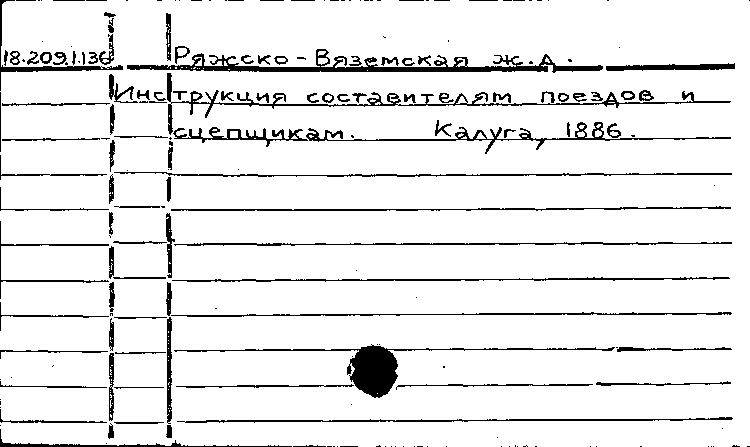 18.209.1.136 Ряжско-Вяземская ж.д.
Инструкция составителям поездов и
сцепщикам. Калуга, 1886.